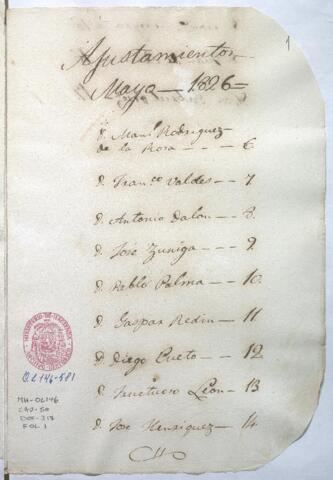 1
Ajustamientos
Mayo — 1826 =
d. Man.l Rodriguez
de la Rosa - - - 6
d. Fran.co Valdes - - 7
d. Antonio Dalon - - 8
d. José Zuniga - - - 9
d. Pablo Palma - - - 10
d. Gaspar Redin - - - 11
d. Diego Cueto - - - 12
d. Fructuoso León - 13
d. Jose Henriquez - - 14
O.L 146-581
MH-OL146
CAJ-50
DOC-318
FOL. 1